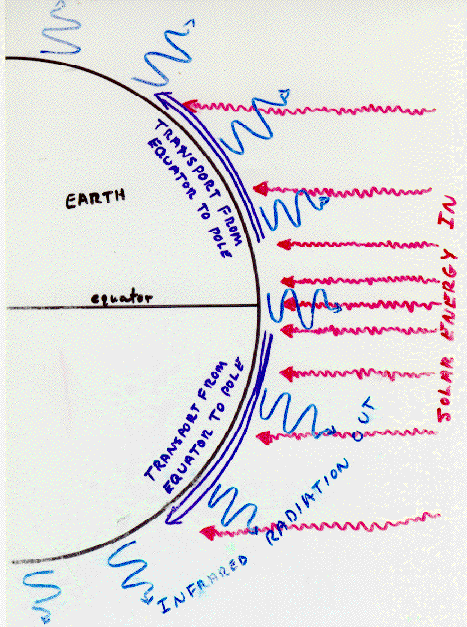 TRANSPORT FROM
EQUATOR TO POLE
EARTH
equator
SOLAR ENERGY IN
TRANSPORT FROM
EQUATOR TO POLE
INFRARED RADIATION OUT